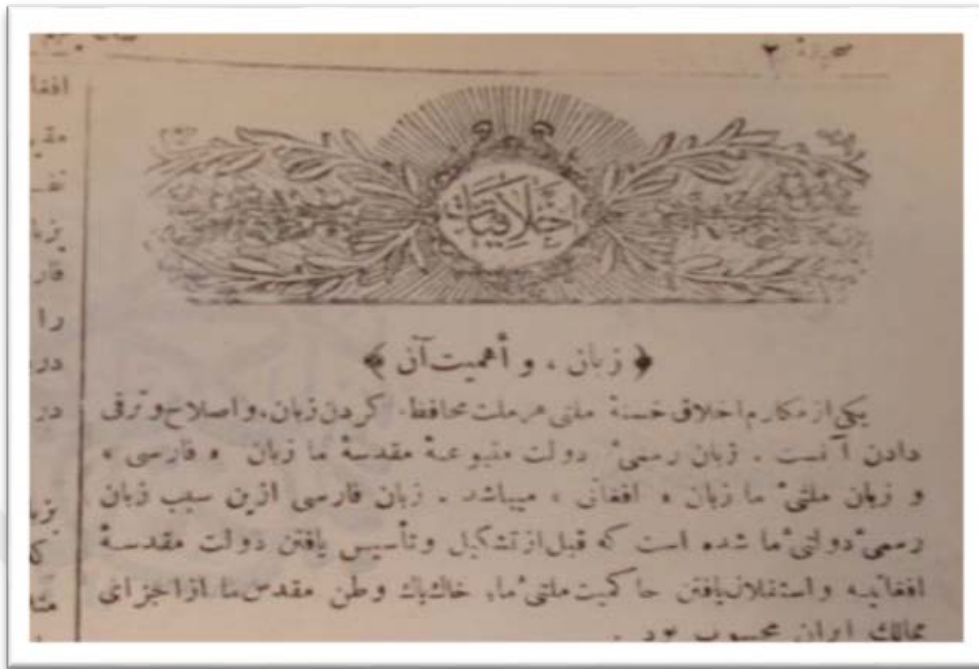 ۲
اخلاقیات
﴿ زبان ، و أهمیت آن ﴾
یکی از مکارم اخلاق حسنهٔ ملتی هر ملت محافظه کردن زبان، و اصلاح و ترقی
دادن آنست . زبان رسمیٔ دولت متبوعهٔ مقدسهٔ ما زبان « فارسی »
و زبان ملتیٔ ما زبان « افغانی » میباشد . زبان فارسی ازین سبب زبان
رسمیٔ دولتیٔ ما شده است که قبل از تشکیل و تأسیس یافتن دولت مقدسهٔ
افغانیه و استقلال یافتن حاکمیت ملتیٔ ما، خاك پاك وطن مقدس ما از اجزای
ممالك ایران محسوب بود .
افغا
مقد
نفـ
بزبا
فار
را
در
در
زبا
که